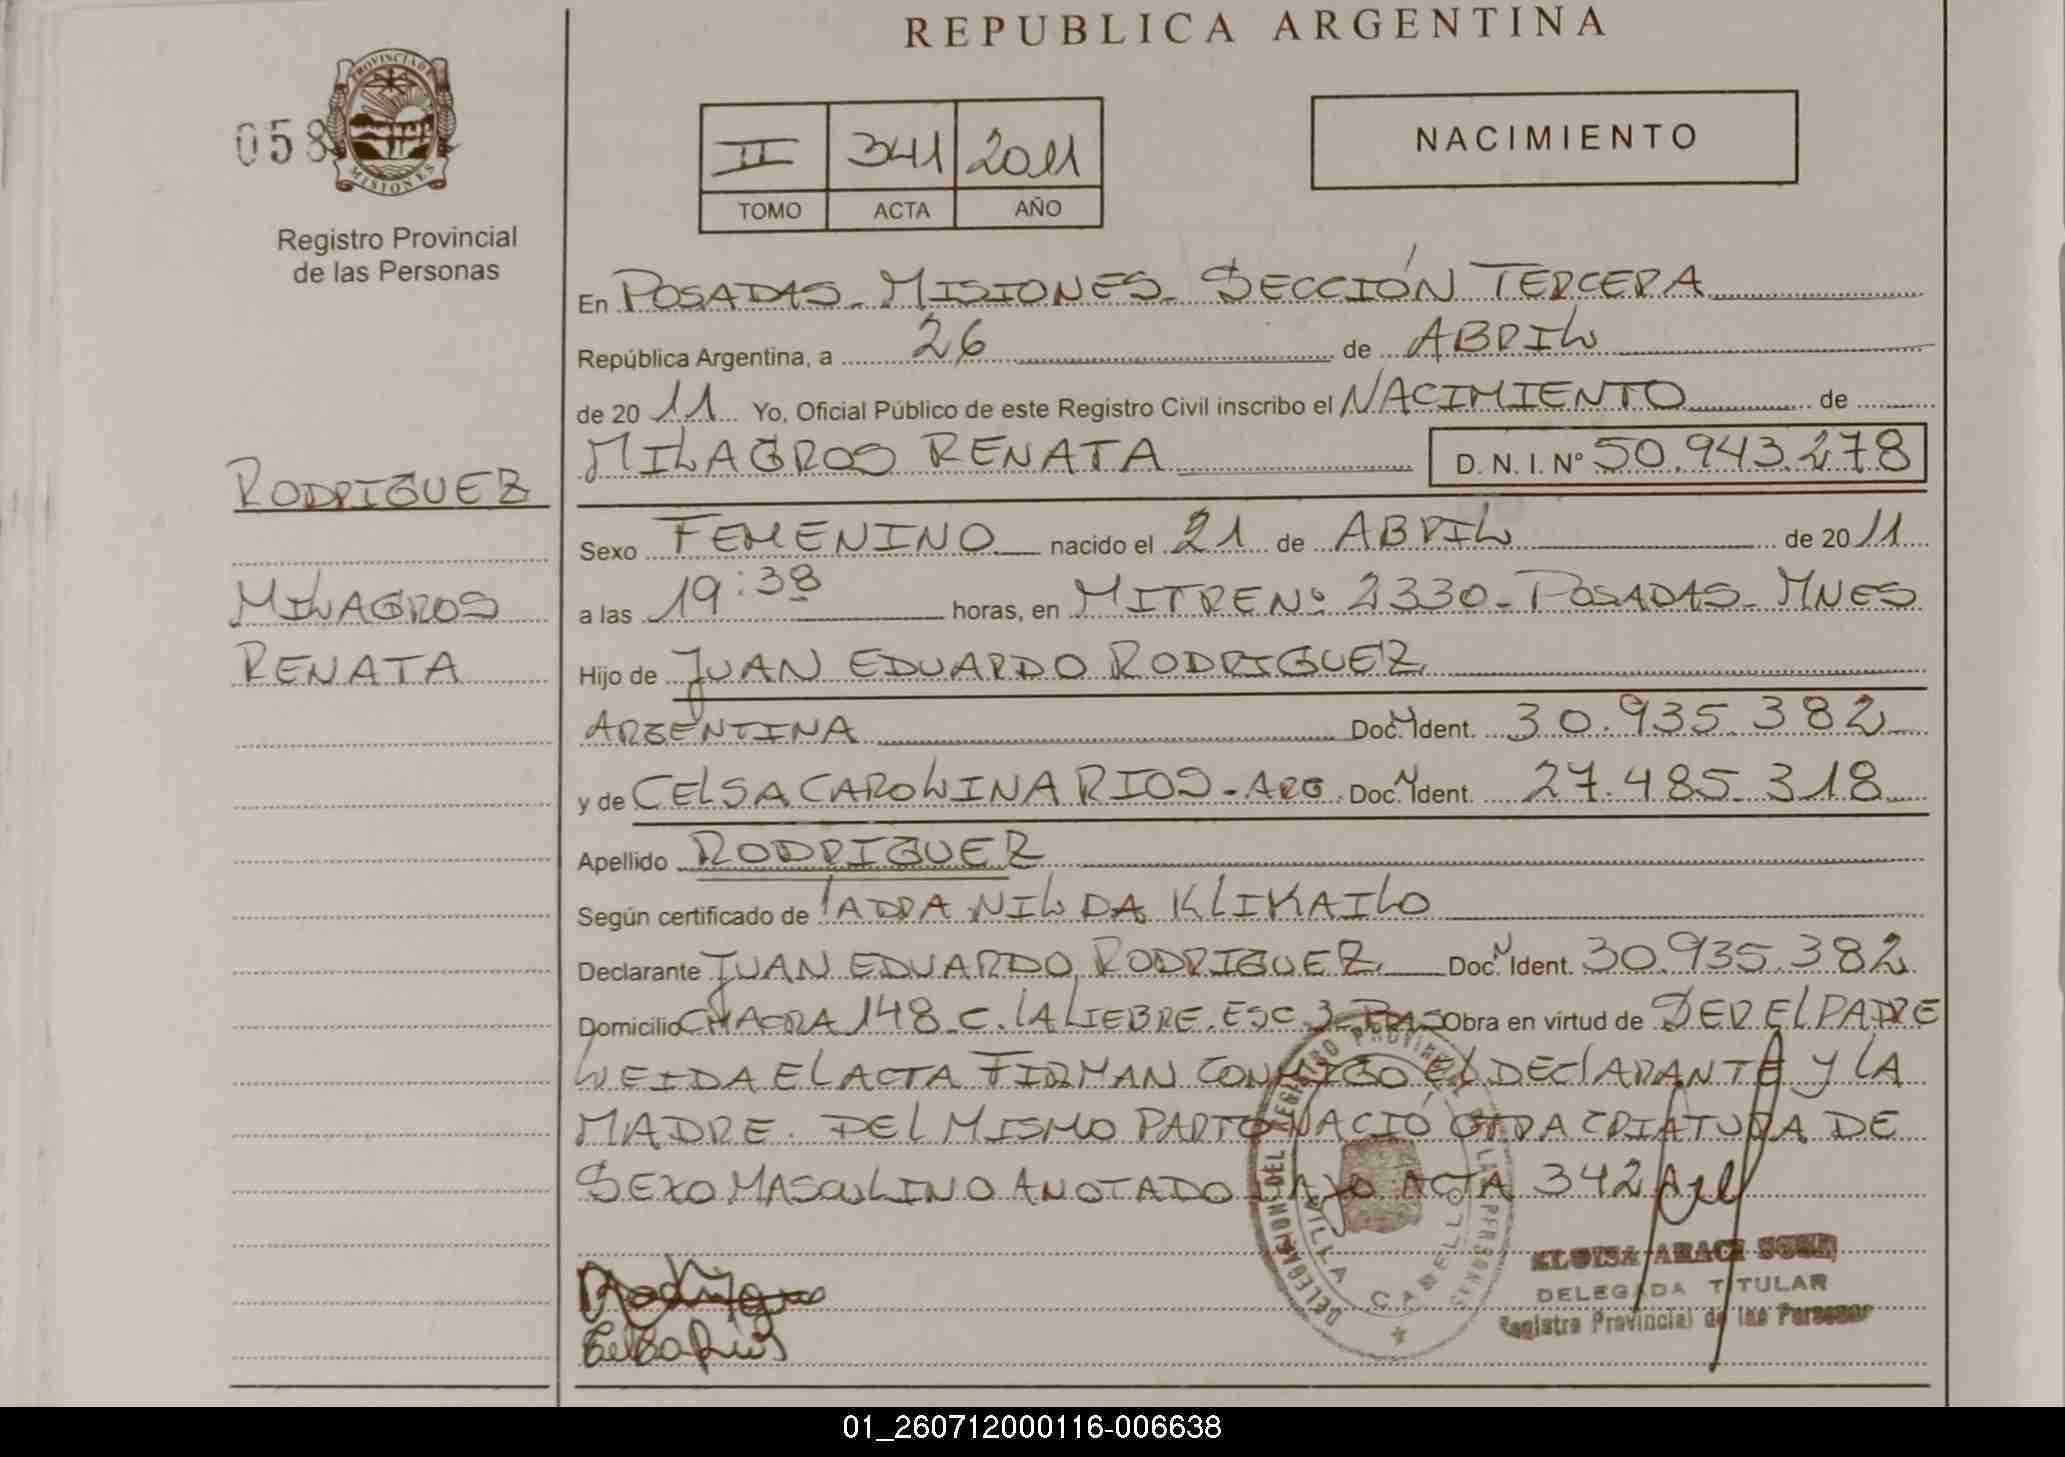 REPUBLICA ARGENTINA
058
PROVINCIA DE MISIONES
Registro Provincial
de las Personas
II 341 2011
TOMO ACTA AÑO
NACIMIENTO
En POSADAS - MISIONES - SECCIÓN TERCERA
República Argentina, a 26 de ABRIL
de 2011 Yo, Oficial Público de este Registro Civil inscribo el NACIMIENTO de
MILAGROS RENATA D. N. I. Nº 50.943.278
RODRIGUEZ
MILAGROS
RENATA
Sexo FEMENINO nacido el 21 de ABRIL de 2011
a las 19:38 horas, en MITRE Nº 2330 - POSADAS - MNES
Hijo de JUAN EDUARDO RODRIGUEZ
ARGENTINA Doc. N Ident. 30.935.382
y de CELSA CAROLINA RIOS - ARG. Doc. N Ident. 27.485.318
Apellido RODRIGUEZ
Según certificado de NILDA KLIKAILO
Declarante JUAN EDUARDO RODRIGUEZ Doc. N Ident. 30.935.382
Domicilio CHACRA 148 C. LA LIEBRE. ESC. 3 Obra en virtud de SER EL PADRE
LEIDA EL ACTA FIRMAN CONMIGO EL DECLARANTE Y LA
MADRE. DEL MISMO PARTO NACIÓ OTRA CRIATURA DE
SEXO MASCULINO ANOTADO BAJO ACTA 342
DELEGACION DEL REGISTRO PROVINCIAL DE LAS PERSONAS
VILLA CABELLO
ELOISA ARACI
DELEGADA TITULAR
Registro Provincial de las Personas
Rodrigue
Celsa Rios
01_260712000116-006638